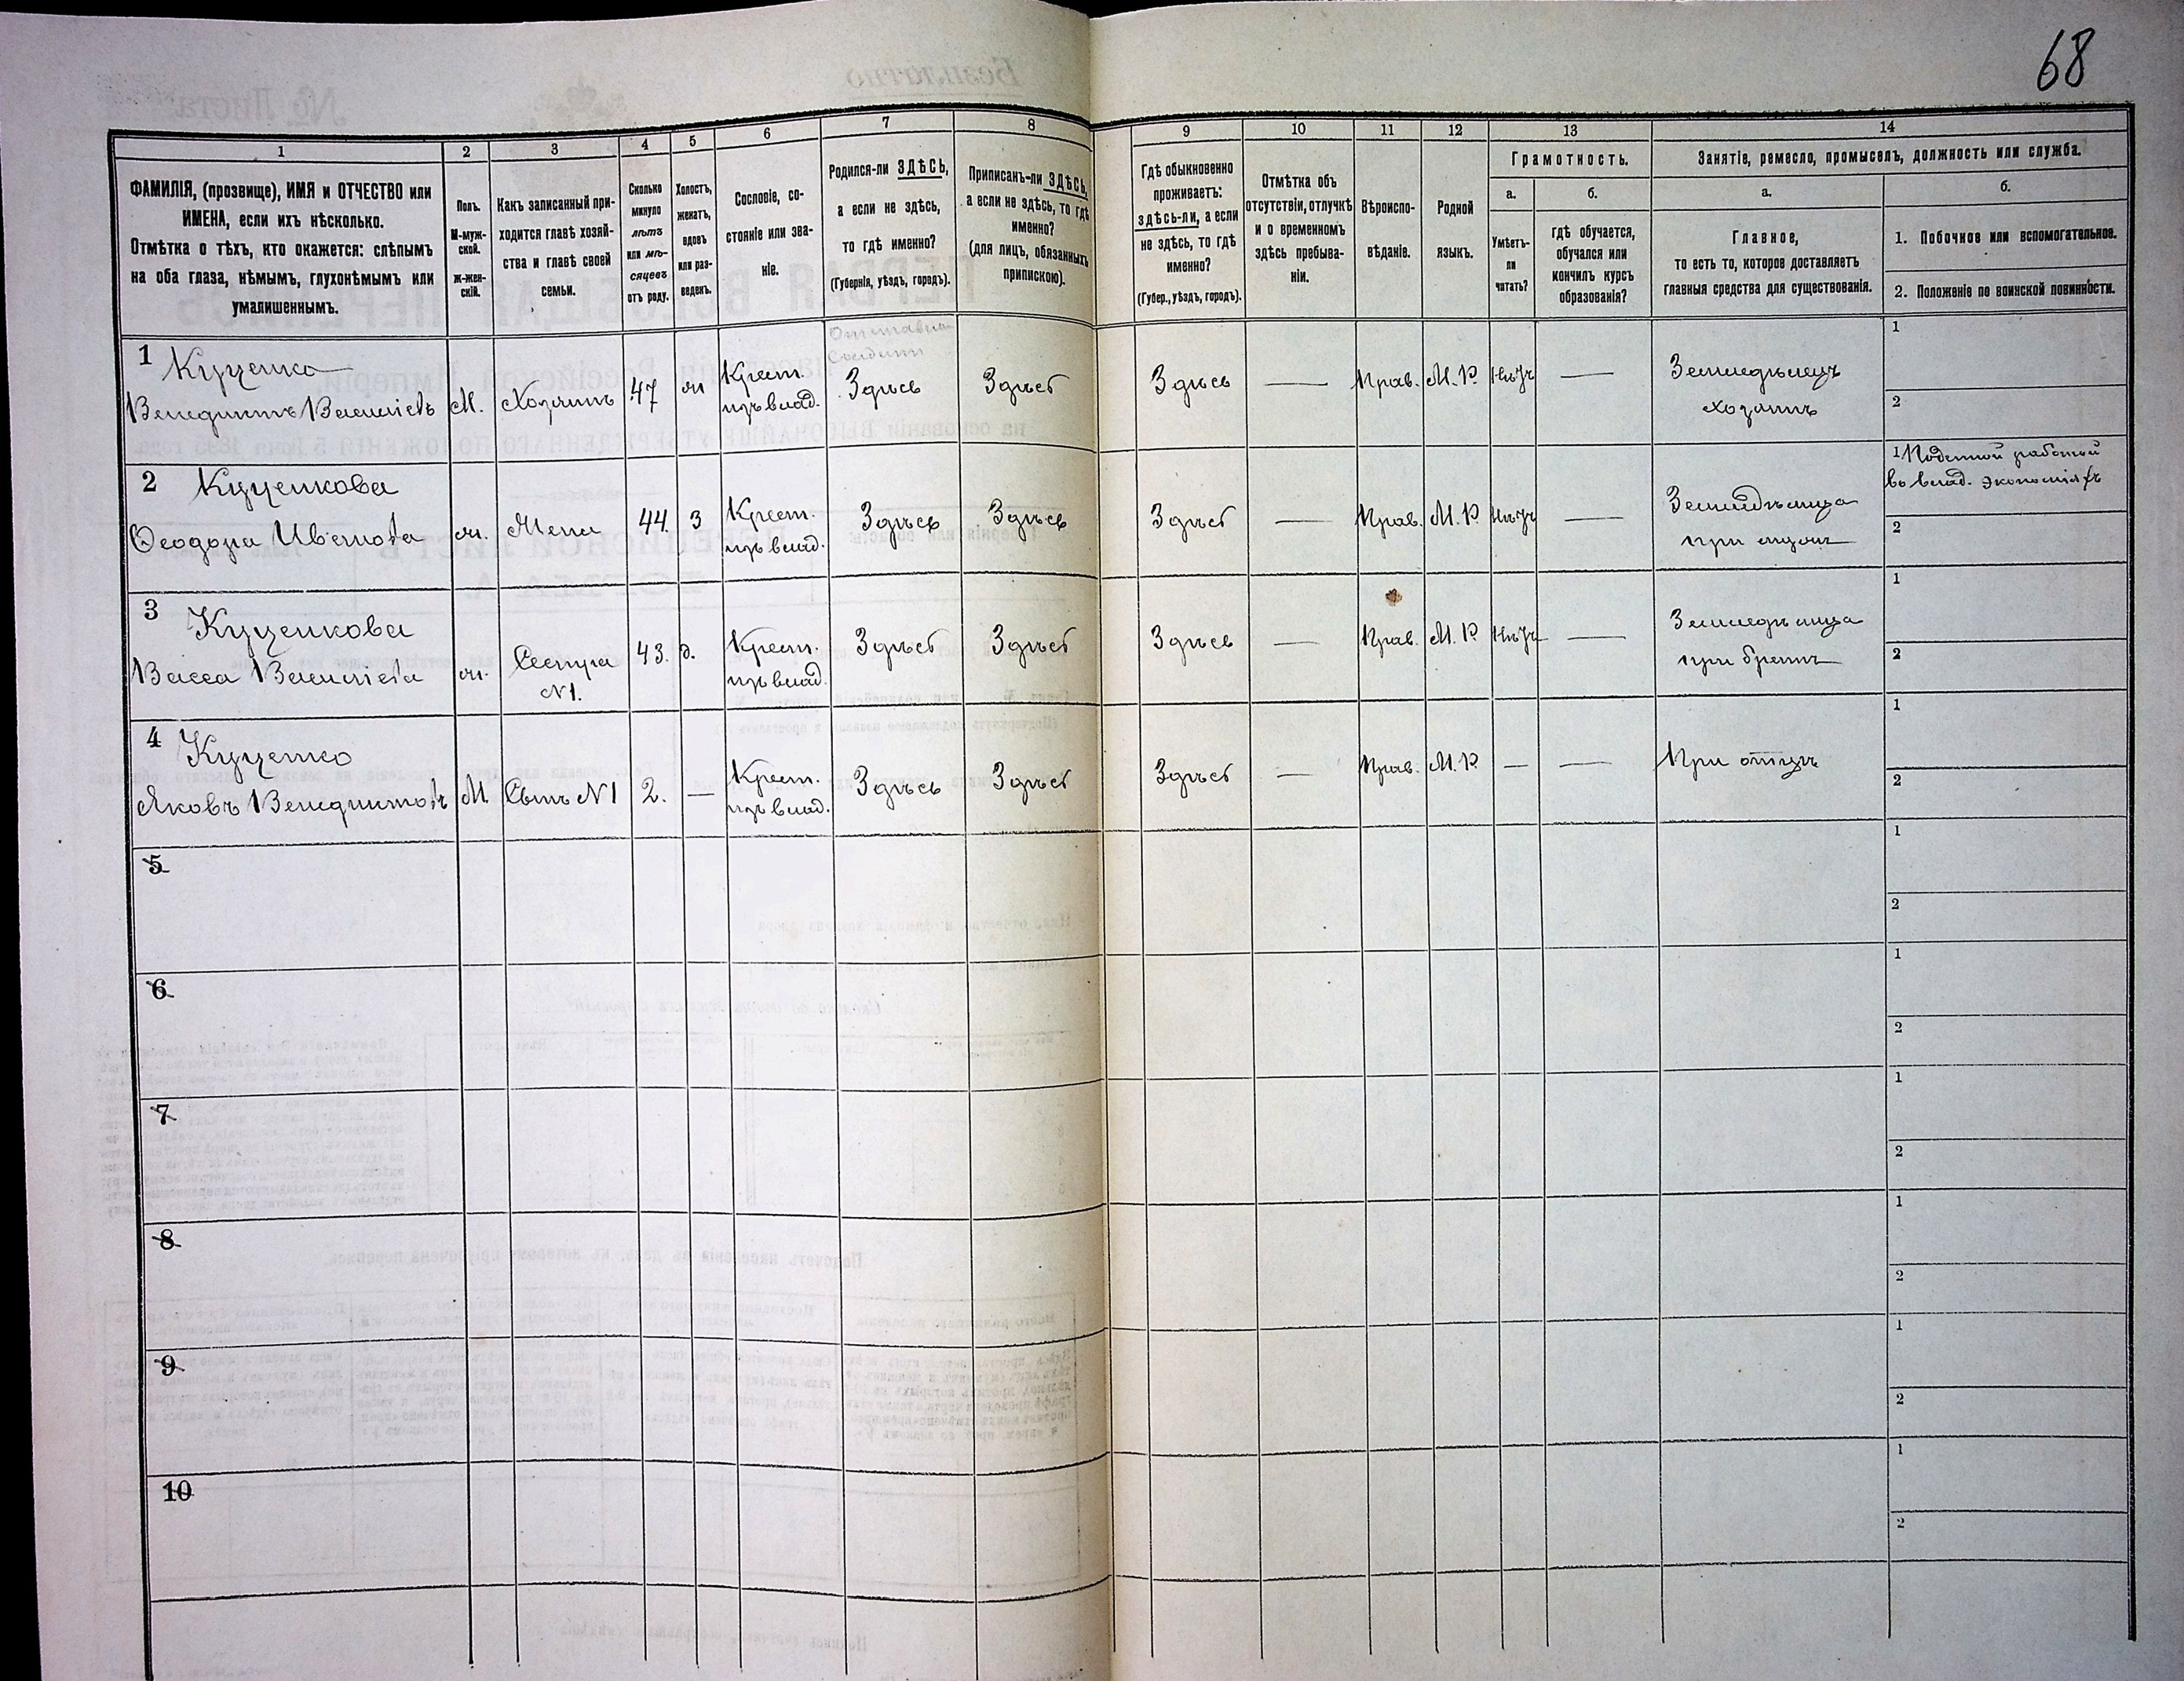 68
1
2
3
4
5
6
7
8
9
10
11
12
13
14
ФАМИЛІЯ, (прозвище), ИМЯ и ОТЧЕСТВО или
ИМЕНА, если ихъ нѣсколько.
Отмѣтка о тѣхъ, кто окажется: слѣпымъ
на оба глаза, нѣмымъ, глухонѣмымъ или
умалишеннымъ.
Полъ.
М-муж-
ской.
ж-жен-
скій.
Какъ записанный при-
ходится главѣ хозяй-
ства и главѣ своей
семьи.
Сколько
минуло
лѣтъ
или мѣ-
сяцевъ
отъ роду.
Холостъ,
женатъ,
вдовъ
или раз-
веденъ.
Сословіе, со-
стояніе или зва-
ніе.
Родился-ли ЗДѢСЬ,
а если не здѣсь,
то гдѣ именно?
(Губернія, уѣздъ, городъ).
Приписанъ-ли ЗДѢСЬ,
а если не здѣсь, то гдѣ
именно?
(для лицъ, обязанныхъ
припискою).
Гдѣ обыкновенно
проживаетъ:
здѣсь-ли, а если
не здѣсь, то гдѣ
именно?
(Губер., уѣздъ, городъ).
Отмѣтка объ
отсутствіи, отлучкѣ
и о временномъ
здѣсь пребыва-
ніи.
Вѣроиспо-
вѣданіе.
Родной
языкъ.
Грамотность.
а.
Умѣетъ-
ли
читать?
б.
гдѣ обучается,
обучался или
кончилъ курсъ
образованія?
Занятіе, ремесло, промыселъ, должность или служба.
а.
Главное,
то есть то, которое доставляетъ
главныя средства для существованія.
б.
1. Побочное или вспомогательное.
2. Положеніе по воинской повинности.
1 Куценко
Венедиктъ Васильевъ
М.
Хозяинъ
47
ж
Крест.
изъ влад.
Здѣсь
Здѣсь
Здѣсь
—
Прав.
М. Р.
—
Земледѣлецъ
хозяинъ
1
2
2 Куценкова
Ѳеодора Иванова
ж.
Жена
44.
З
Крест.
изъ влад.
Здѣсь
Здѣсь
Здѣсь
—
Прав.
М. Р.
—
Земледѣлица
при мужѣ
1 Поденной работой
во влад. экономіяхъ
2
3 Куценкова
Васса Васильева
ж.
Сестра
N1.
43.
д.
Крест.
изъ влад.
Здѣсь
Здѣсь
Здѣсь
—
Прав.
М. Р.
—
Земледѣлица
при братѣ
1
2
4 Куценко
Яковъ Венедиктовъ
М.
Сынъ N1
2.
—
Крест.
изъ влад.
Здѣсь
Здѣсь
Здѣсь
—
Прав.
М. Р.
—
—
При отцѣ
1
2
5
1
2
6
1
2
7
1
2
8
1
2
9
1
2
10
1
2